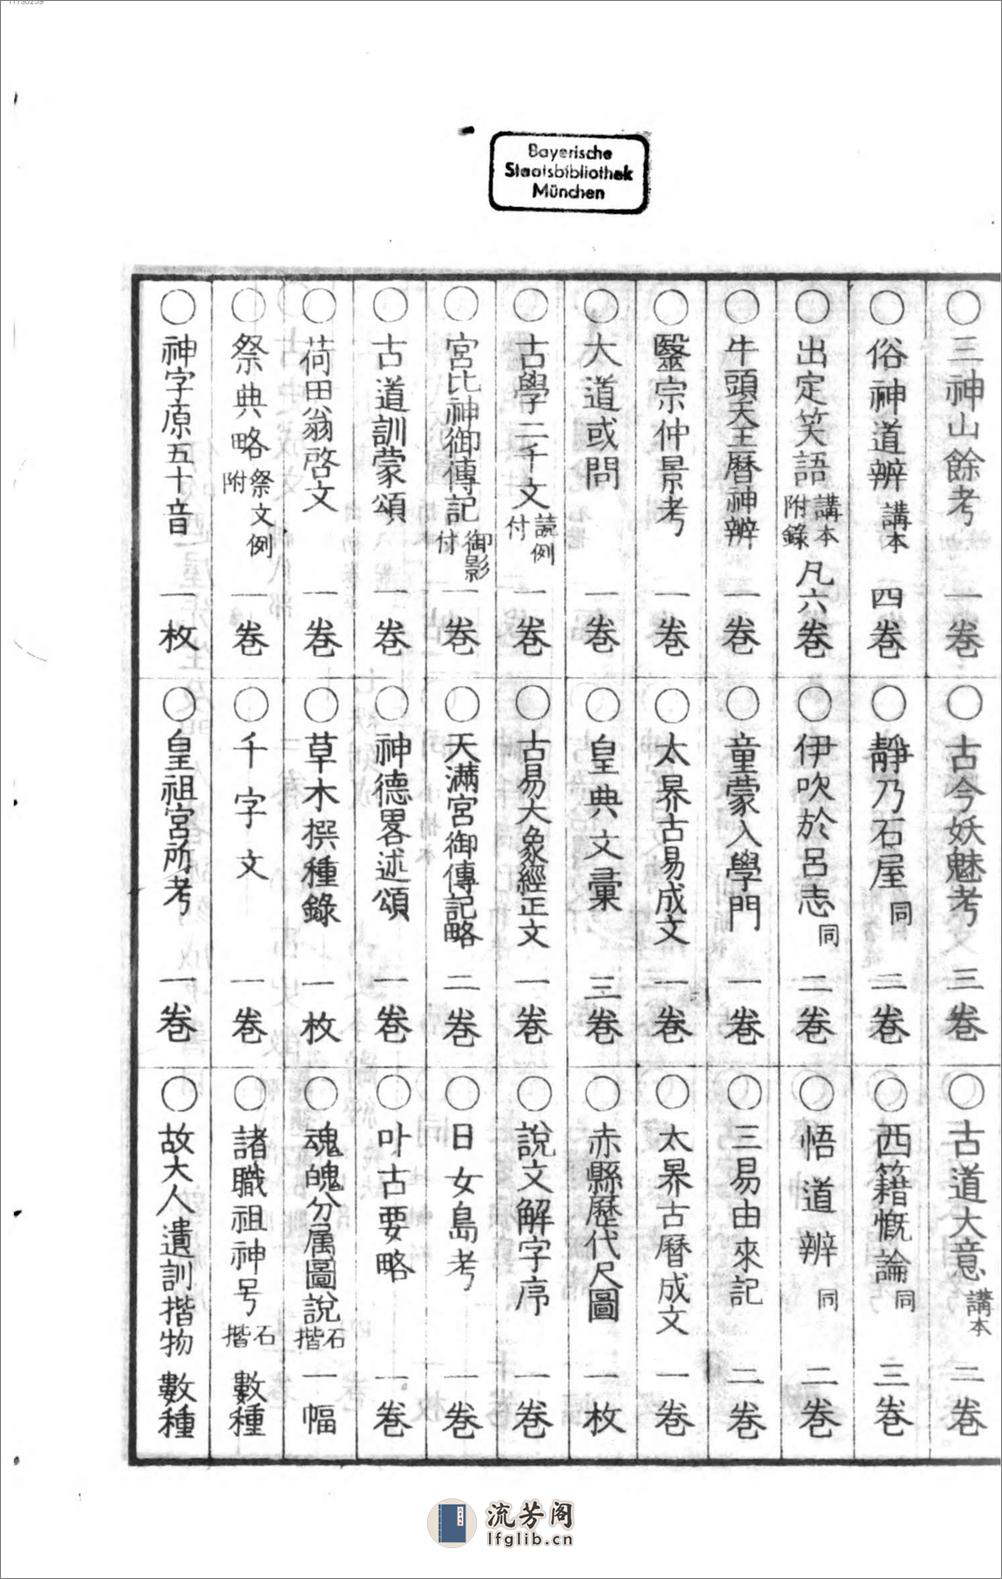 11730259
Bayerische
Staatsbibliothek
München
○三神山餘考 一巻 ○古今妖魅考 三巻 ○古道大意 講本 二巻
○俗神道辨 講本 四巻 ○靜乃石屋 同 二巻 ○西籍慨論 同 三巻
○出定笑語 講本附錄 凡六巻 ○伊吹於呂志 同 二巻 ○悟道辨 同 二巻
○牛頭天王曆神辨 一巻 ○童蒙入學門 一巻 ○三易由來記 二巻
○醫宗仲景考 一巻 ○太昦古易成文 一巻 ○太昦古曆成文 一巻
○大道或問 一巻 ○皇典文彙 三巻 ○赤縣歷代尺圖 一枚
○古學二千文 読例付 一巻 ○古易大象經正文 一巻 ○說文解字序 一巻
○宮比神御傳記 御影付 一巻 ○天滿宮御傳記略 二巻 ○日女島考 一巻
○古道訓蒙頌 一巻 ○神德畧述頌 一巻 ○叶古要略 一巻
○荷田翁啓文 一巻 ○草木撰種錄 一枚 ○魂魄分属圖說 石揩 一幅
○祭典略 祭文例附 一巻 ○千字文 一巻 ○諸職祖神号 石揩 數種
○神字原五十音 一枚 ○皇祖宮所考 一巻 ○故大人遺訓揩物 數種
流芳阁
lfglib.cn